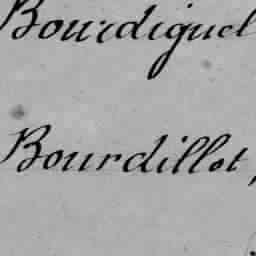 Bourdiguel
Bourdillot,